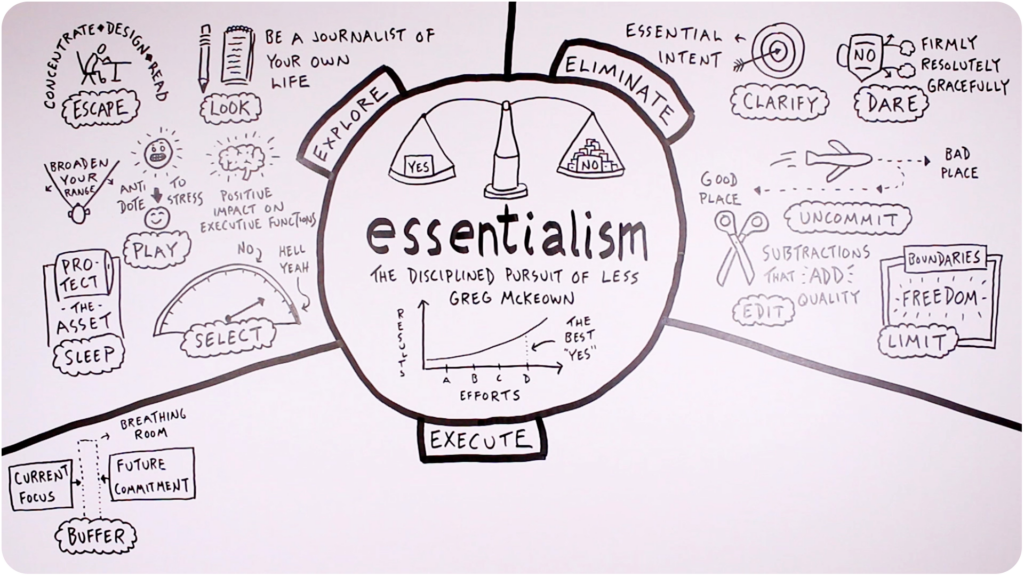 essentialism
THE DISCIPLINED PURSUIT OF LESS
GREG McKEOWN
YES
NO
RESULTS
A B C D
EFFORTS
THE
BEST
"YES"
EXPLORE
CONCENTRATE • DESIGN • READ
ESCAPE
LOOK
BE A JOURNALIST OF
YOUR OWN
LIFE
BROADEN
YOUR
RANGE
ANTI
DOTE
TO
STRESS
PLAY
POSITIVE
IMPACT ON
EXECUTIVE FUNCTIONS
PRO-
TECT
- THE -
ASSET
SLEEP
NO
HELL
YEAH
SELECT
ELIMINATE
ESSENTIAL
INTENT
CLARIFY
NO
FIRMLY
RESOLUTELY
GRACEFULLY
DARE
BAD
PLACE
GOOD
PLACE
UNCOMMIT
SUBTRACTIONS
THAT ADD
QUALITY
EDIT
BOUNDARIES
FREEDOM
LIMIT
EXECUTE
BREATHING
ROOM
CURRENT
FOCUS
FUTURE
COMMITMENT
BUFFER